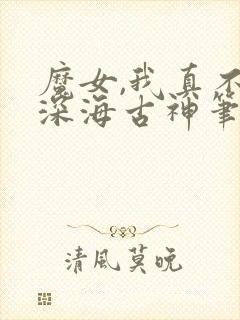 魔女,我真不
深海古神筆
清風莫晚